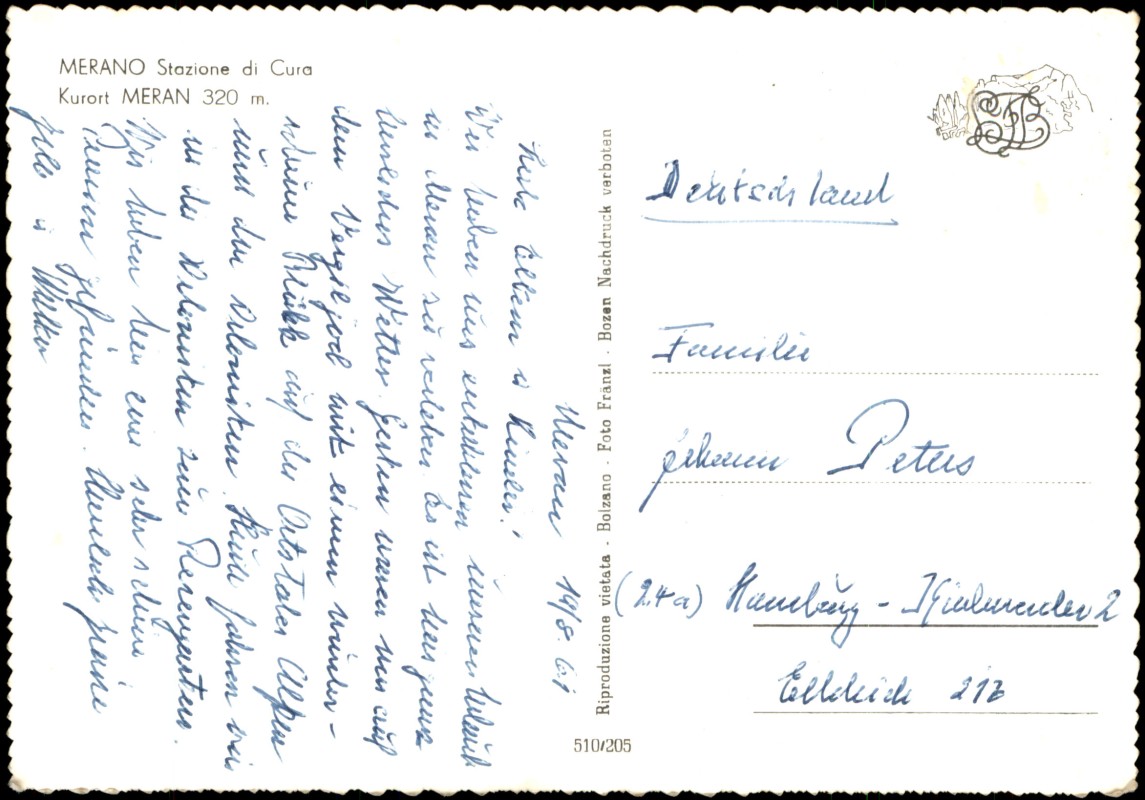 MERANO Stazione di Cura
Kurort MERAN 320 m.
Meran 19/8. 61
Liebe Eltern u Kinder!
Wir haben uns entschlossen unseren Urlaub
in Meran zu verleben. Es ist hier ganz
herrliches Wetter. Gestern waren wir auf
dem Vergiljoch mit einem wunder-
schönen Blick auf die Ötztaler Alpen
und den Dolomiten. Heute fahren wir
in die Dolomiten zum Rosengarten.
Wir haben hier eine sehr schöne
Pension gefunden. Herzliche Grüsse
u Walter
Riproduzione vietata · Bolzano · Foto Fränzl · Bozen Nachdruck verboten
510/205
Deutschland
Familie
Johann Peters
(24a) Hamburg - Finkenwerder 2
217